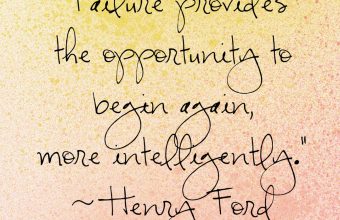 "Failure provides
the opportunity to
begin again,
more intelligently."
~Henry Ford